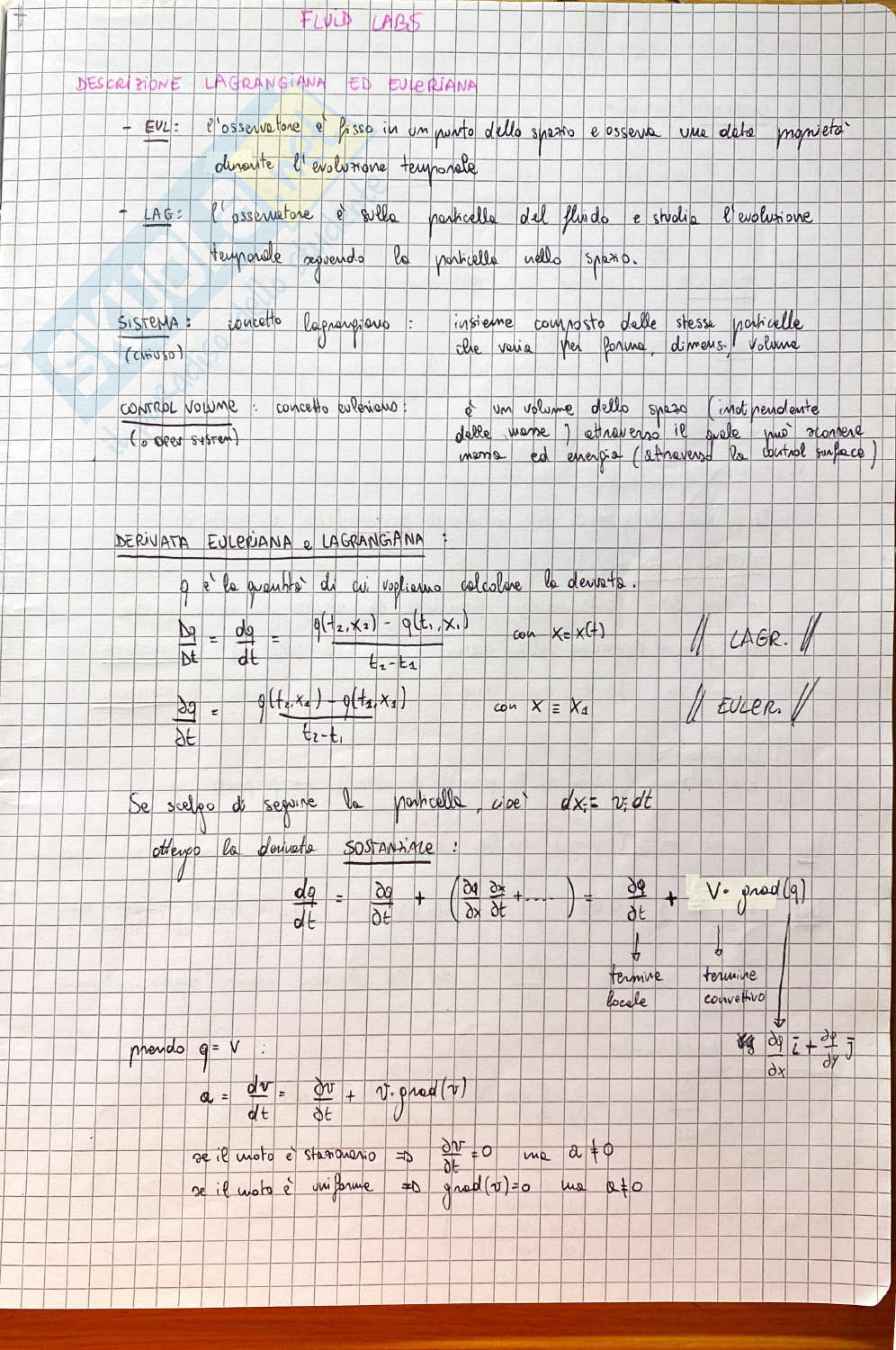 FLUID LABS
DESCRIZIONE LAGRANGIANA ED EULERIANA
- EUL: l'osservatore è fisso in un punto dello spazio e osserva una data proprietà
durante l'evoluzione temporale
- LAG: l'osservatore è sulla particella del fluido e studia l'evoluzione
temporale seguendo la particella nello spazio.
SISTEMA: concetto lagrangiano: insieme composto dalle stesse particelle
(chiuso) che varia per forma, dimens., volume
CONTROL VOLUME: concetto euleriano: è un volume dello spazio (indipendente
(o open system) dalle masse) attraverso il quale può scorrere
massa ed energia (attraverso la control surface)
DERIVATA EULERIANA e LAGRANGIANA:
q è la quantità di cui vogliamo calcolare la derivata.
Dq/Dt = dq/dt = (q(t₂,x₂) - q(t₁,x₁))/(t₂-t₁) con x=x(t) // LAGR. //
∂q/∂t = (q(t₂,x₁) - q(t₁,x₁))/(t₂-t₁) con x ≡ x₁ // EULER. //
Se scelgo di seguire la particella, cioè dxᵢ = vᵢ dt
ottengo la derivata SOSTANZIALE:
dq/dt = ∂q/∂t + (∂q/∂x ∂x/∂t + .....) = ∂q/∂t + V · grad(q)
termine locale
termine convettivo
∂q/∂x i + ∂q/∂y j
prendo q = V :
a = dv/dt = ∂v/∂t + v·grad(v)
se il moto è stazionario ⇒ ∂v/∂t = 0 ma a ≠ 0
se il moto è uniforme ⇒ grad(v)=0 ma a≠0